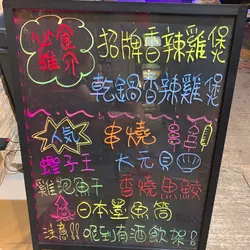 必食
推介
招牌香辣雞煲
乾鍋香辣雞煲
人氣
串燒
蟶子王
大元貝
雞泡魚干
香燒魚鮫
日本墨魚筒
注意!! 呢到有酒飲架!